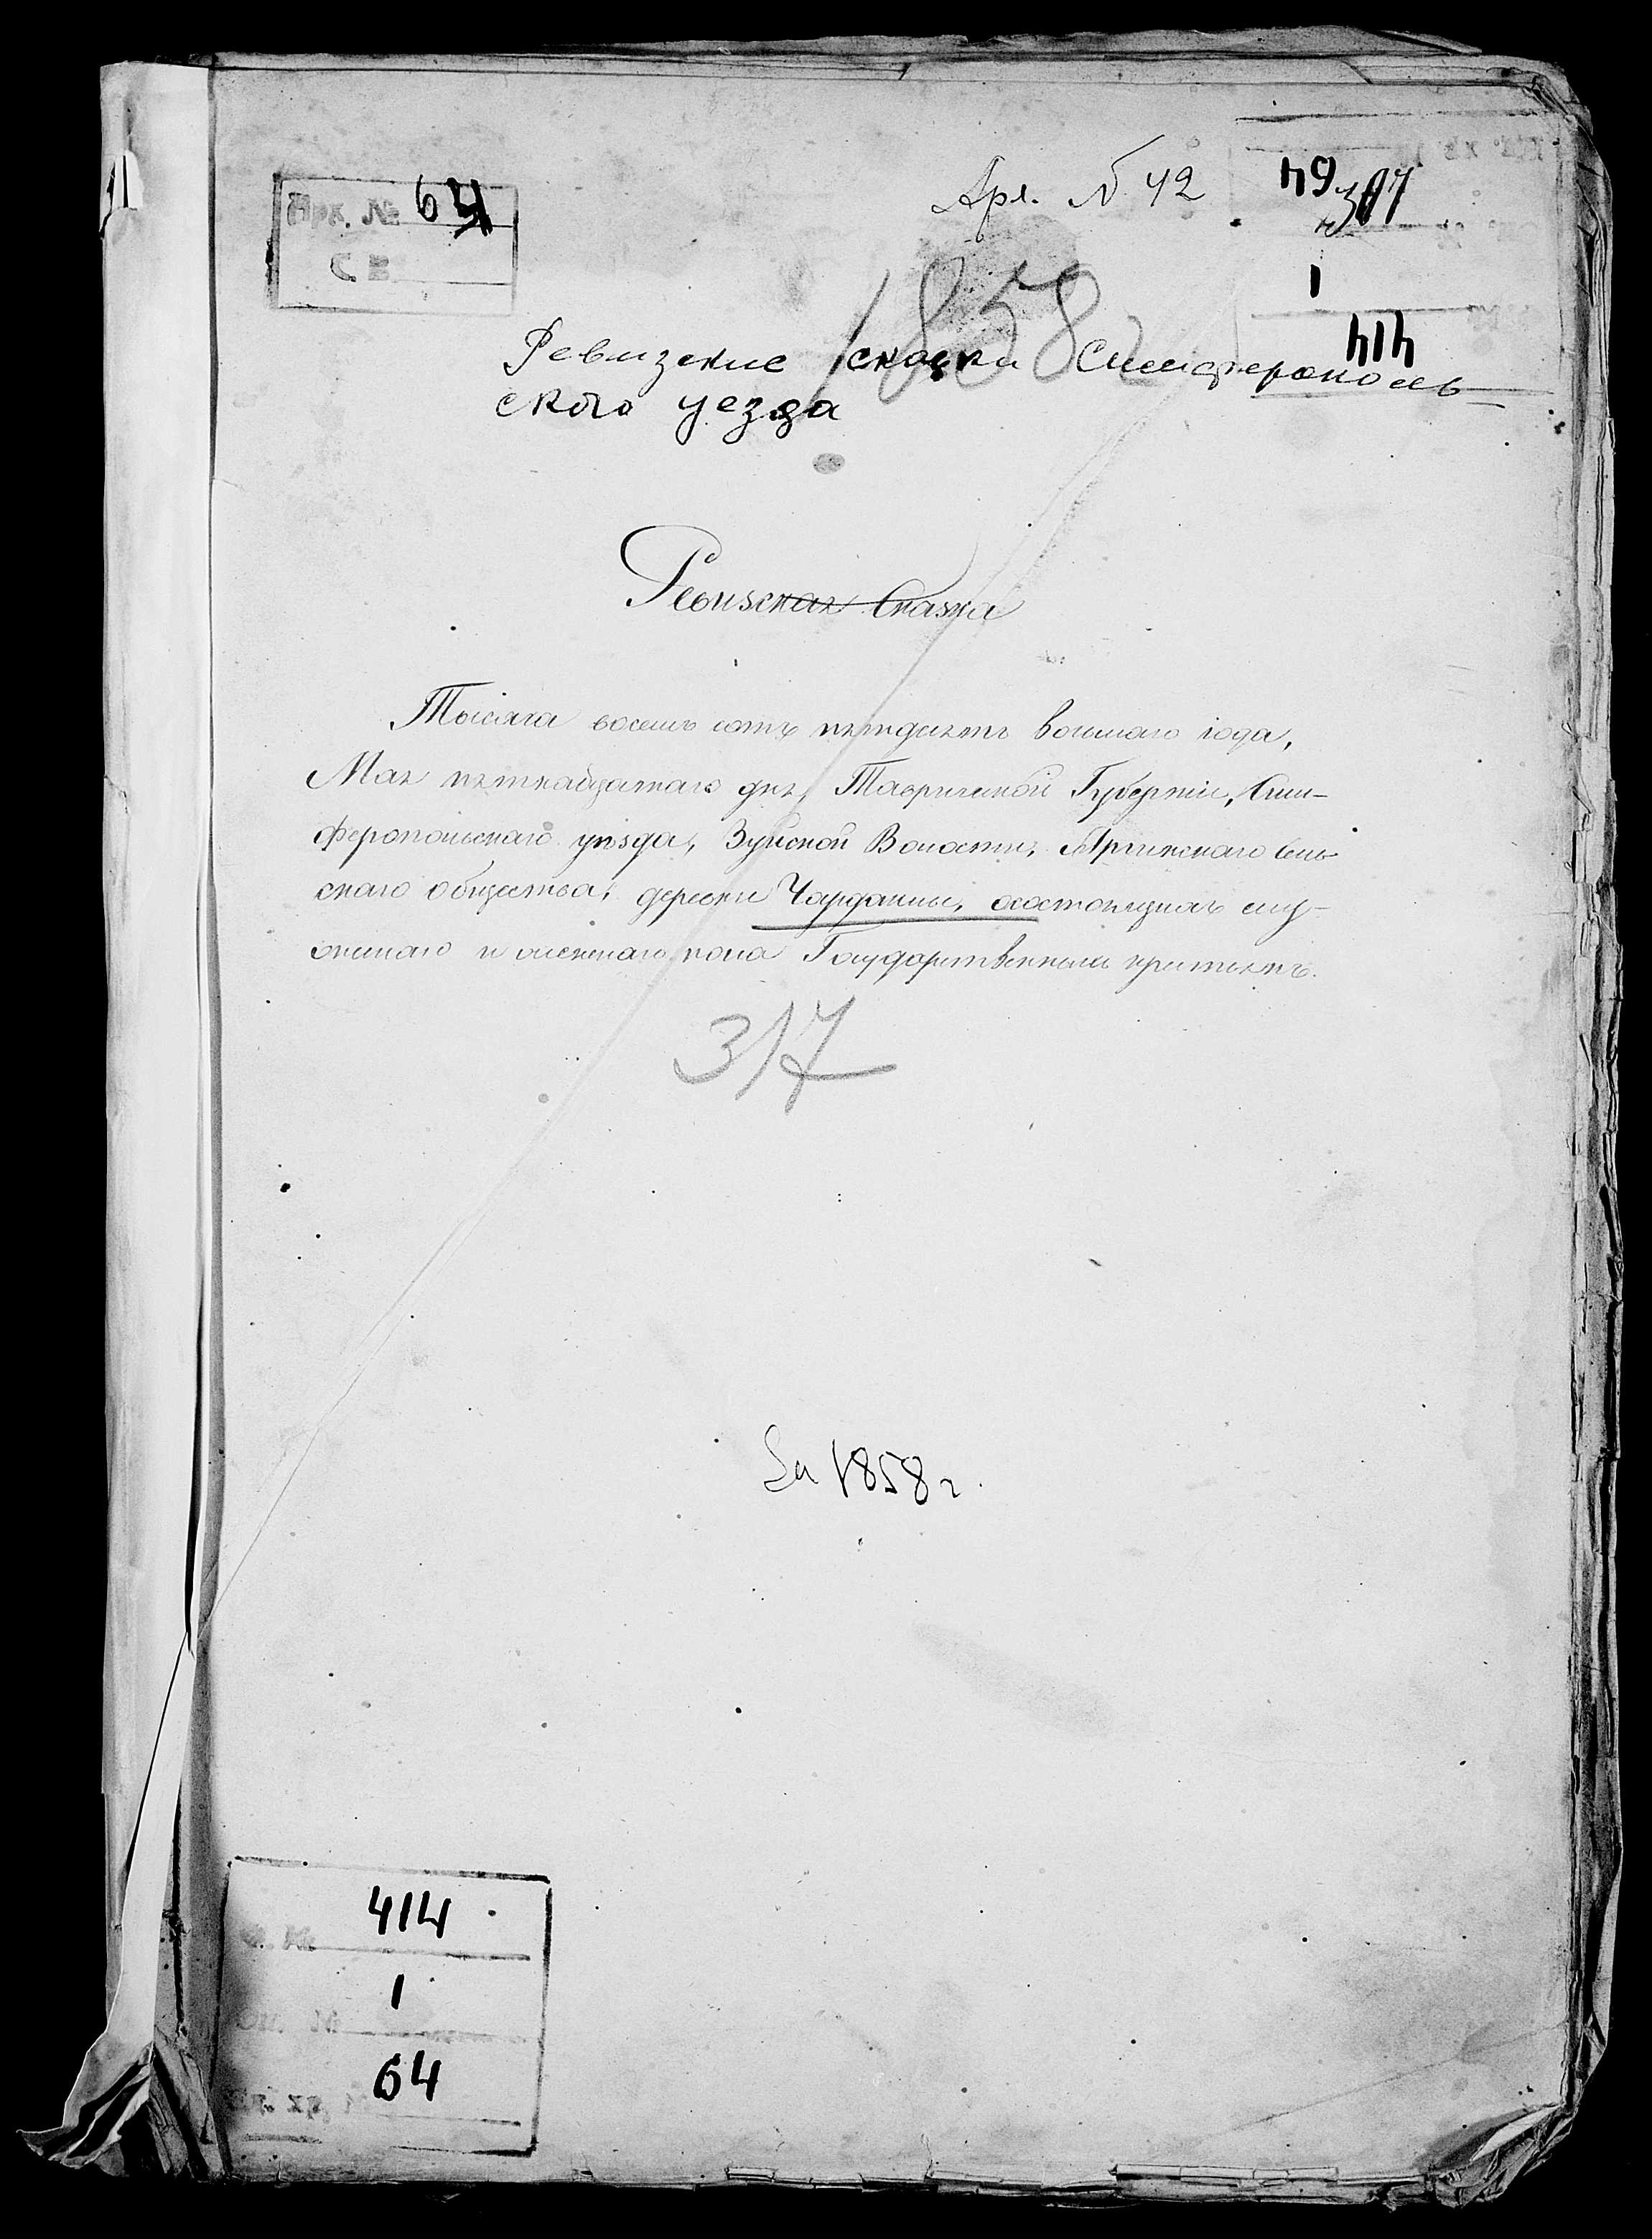 Арх. № 64
С В
Арх. № 42
64 317
1
414
1858
Ревизские сказки Симферополь
ского уезда
Ревизская Сказка
Тысяча восемь сотъ пятдесятъ восьмаго года,
Мая пятнадцатаго дня, Таврической Губерніи, Сим-
феропольскаго уѣзда, Зуйской Волости, Аргинскаго сель-
скаго общества, деревни Чардаклы, о состоящихъ му-
жескаго и женскаго пола Государственныхъ крестьянъ.
317
За 1858 г.
Ф. № 414
Оп. № 1
Ед. хр. № 64